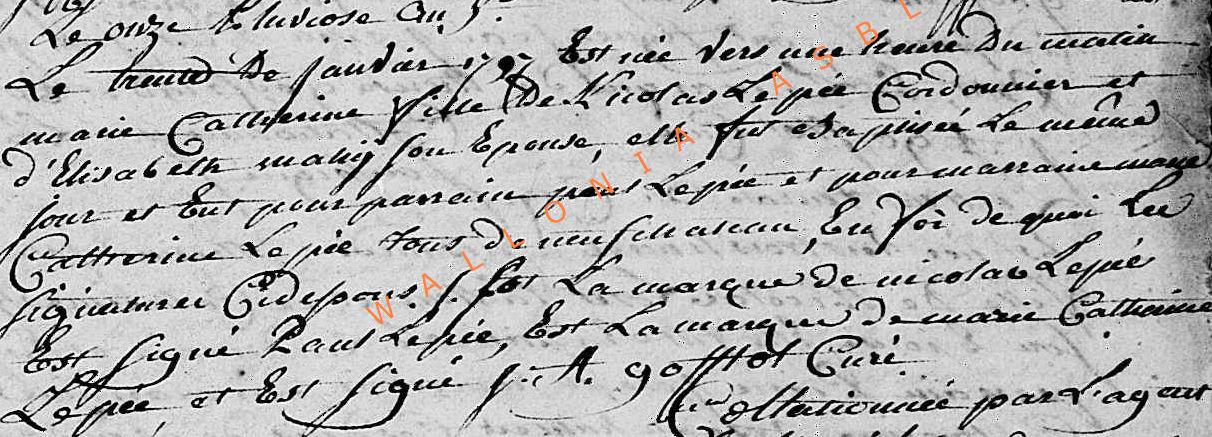 Le onze Pluviose an 5e
Le trente de janvier 1797 Est née vers une heure Du matin
marie Catherine fille de Nicolas Lepée Cordonnier et
d'Elisabeth mahy son Epouse, elle fut Baptisée Le même
jour et Eut pour parrain paul Lepée et pour marraine marie
Catherine Lepée tous de neufchateau, En foi de quoi Les
signatures Cidessous. s. Est La marque de nicolas Lepée
Est signé Paul Lepée, Est La marque de marie Catherine
Lepée, et Est signé J. A. gofflot Curé
Collationnée par L'agent
WALLONIA ASBL